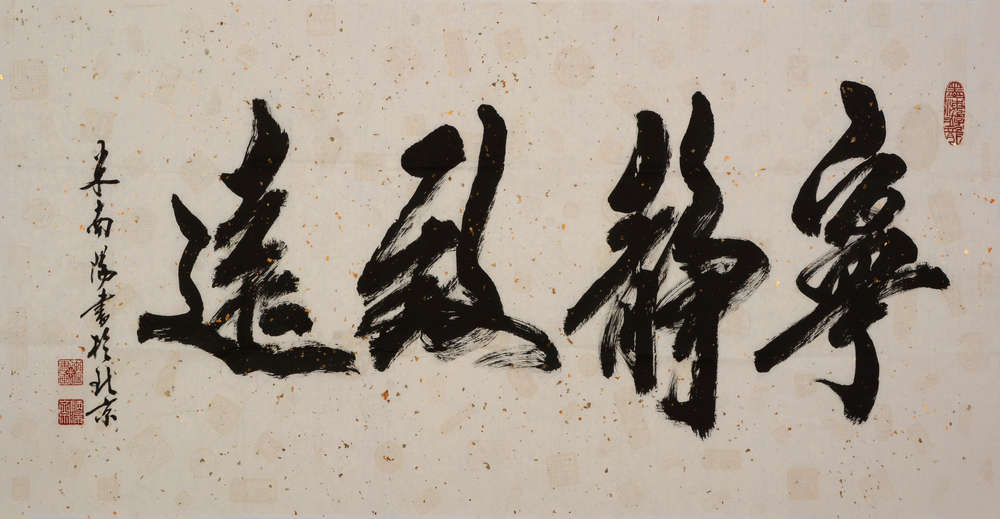 寧靜致遠
米南陽書於北京